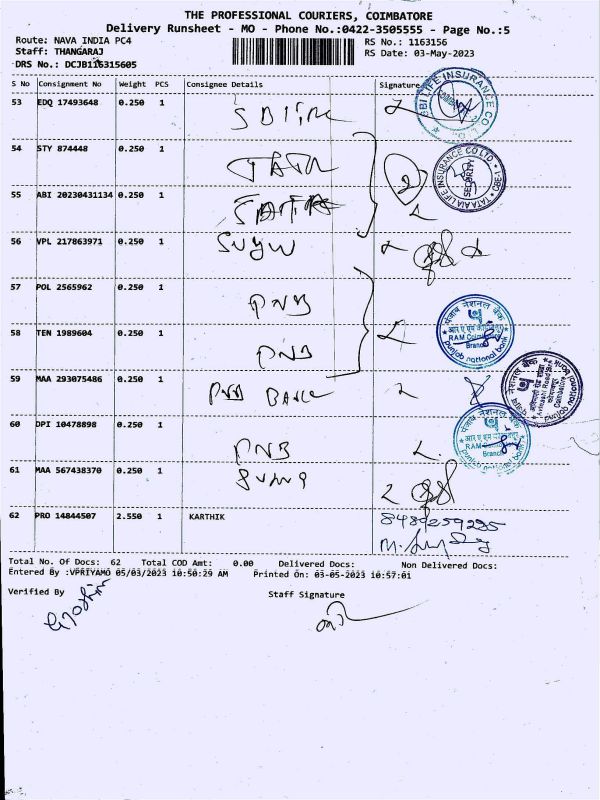 THE PROFESSIONAL COURIERS, COIMBATORE
Delivery Runsheet - MO - Phone No.:0422-3505555 - Page No.:5
Route: NAVA INDIA PC4 RS No.: 1163156
Staff: THANGARAJ RS Date: 03-May-2023
DRS No.: DCJB116315605
S No Consignment No Weight PCS Consignee Details Signature
53 EDQ 17493648 0.250 1
SBI LIFE INSURANCE CO L
54 STY 874448 0.250 1 TATA
TATA AIA LIFE INSURANCE CO LTD. CBE-1 SECURITY
55 ABI 20230431134 0.250 1
56 VPL 217863971 0.250 1
57 POL 2565962 0.250 1 PNB
58 TEN 1989604 0.250 1 PNB
पंजाब नैशनल बैंक
RAM Coimbatore
Branch
punjab national bank
59 MAA 293075486 0.250 1 PNB BANK
पंजाब नैशनल बैंक
Avinashi Road
Coimbatore
punjab national bank
60 DPI 10478898 0.250 1 PNB
पंजाब नैशनल बैंक
RAM Coimbatore
Branch
punjab national bank
61 MAA 567438370 0.250 1
62 PRO 14844507 2.550 1 KARTHIK
Total No. Of Docs: 62 Total COD Amt: 0.00 Delivered Docs: Non Delivered Docs:
Entered By :VPRIYAMO 05/03/2023 10:50:29 AM Printed On: 03-05-2023 10:57:01
Verified By Staff Signature